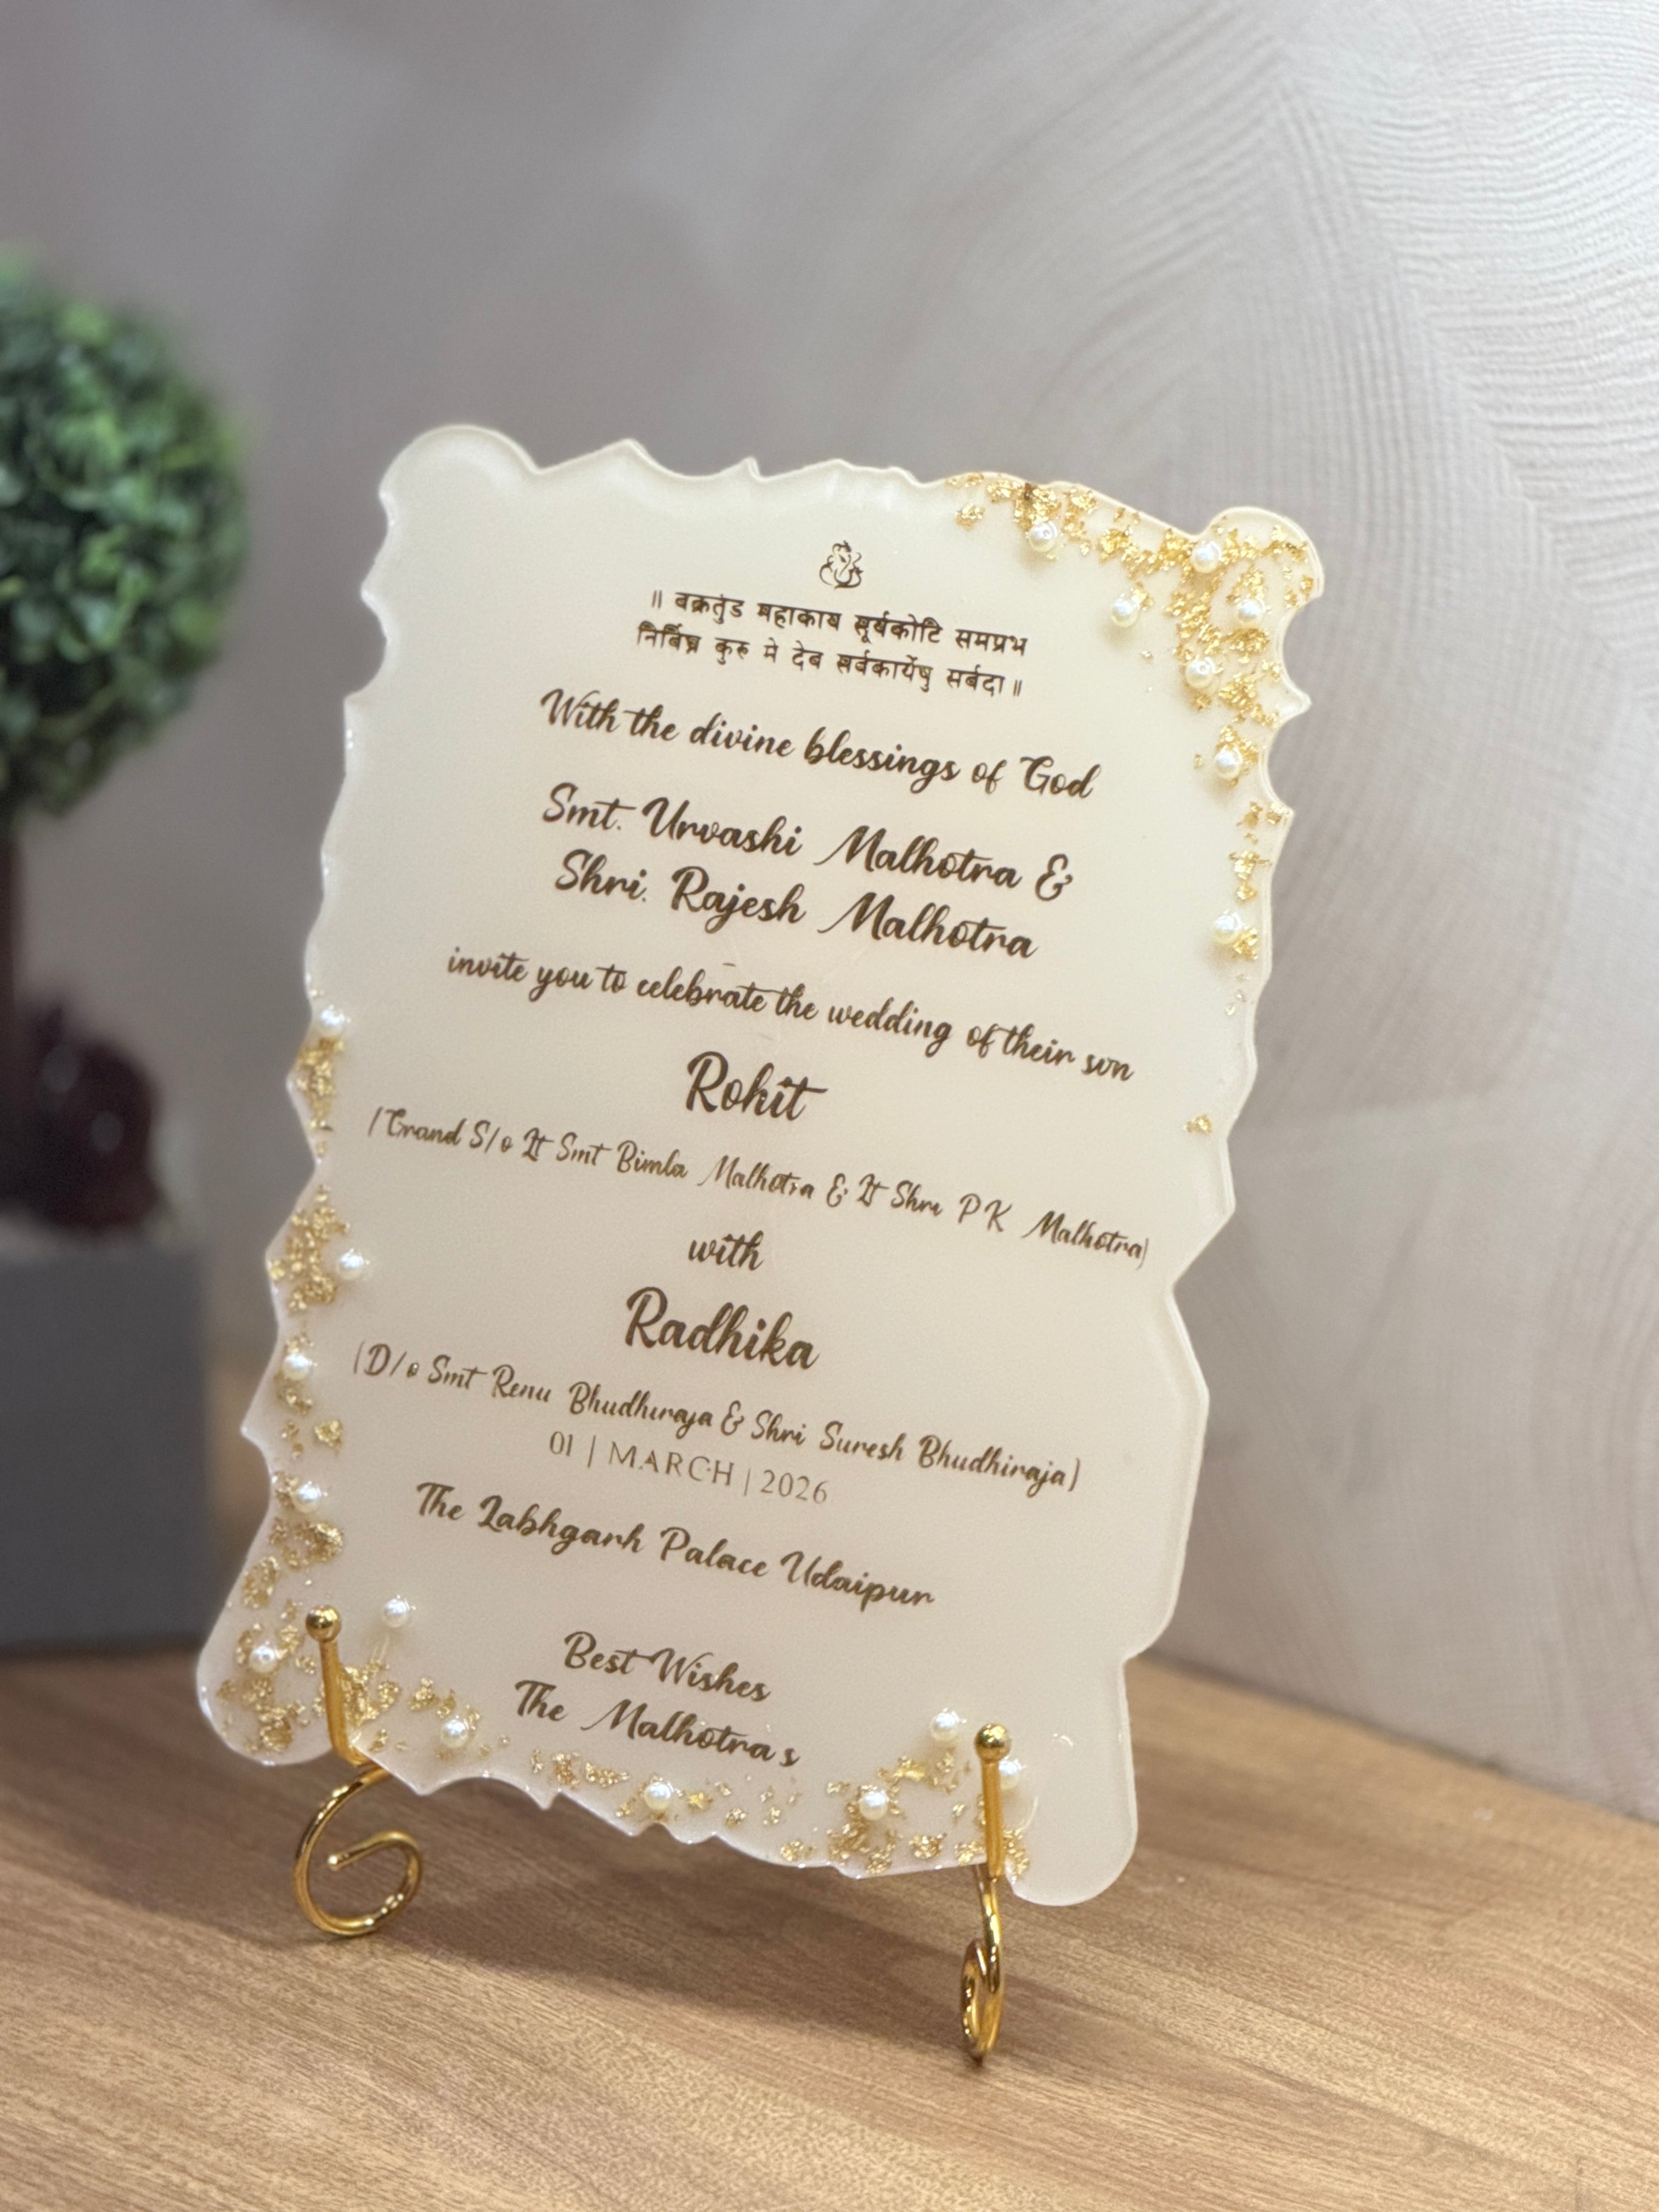 ॥ वक्रतुंड महाकाय सूर्यकोटि समप्रभ
निर्विघ्न कुरु मे देव सर्वकार्येषु सर्वदा ॥
With the divine blessings of God
Smt. Urvashi Malhotra &
Shri. Rajesh Malhotra
invite you to celebrate the wedding of their son
Rohit
(Grand S/o Lt Smt Bimla Malhotra & Lt Shri P K Malhotra)
with
Radhika
(D/o Smt Renu Bhudhiraja & Shri Suresh Bhudhiraja)
01 | MARCH | 2026
The Labhgarh Palace Udaipur
Best Wishes
The Malhotra s